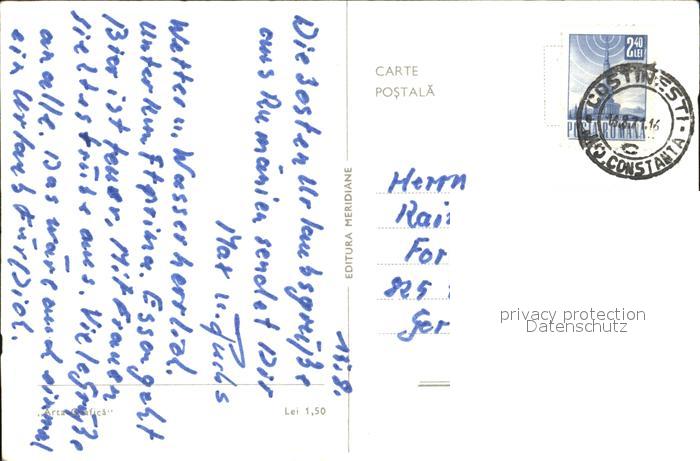 Die besten Urlaubsgrüße
aus Rumänien sendet Dir
Max u.
Wetter u. Wasser herrlich.
Unterkunft prima. Essen geht
Bier ist teuer, Mit Frauen
sieht es trübe aus. Viele Grüße
an alle. Das wäre auch einmal
ein Urlaub für Dich.
13.8.
EDITURA MERIDIANE
„Arta Grafică"
Lei 1,50
CARTE
POȘTALĂ
2,40
LEI
POSTA ROMANA
COSTINEȘTI
JUD. CONSTANTA
Herrn
Rai
For
825
Ger
privacy protection
Datenschutz